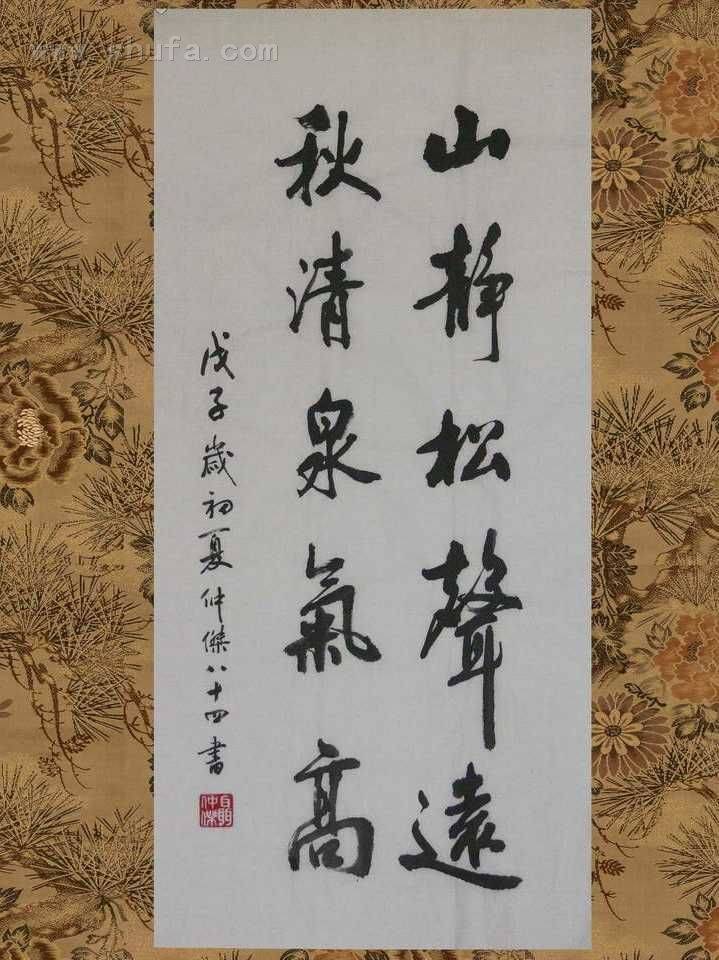 山静松聲遠
秋清泉氣高
戊子歲初夏仲傑八十四書
仲傑